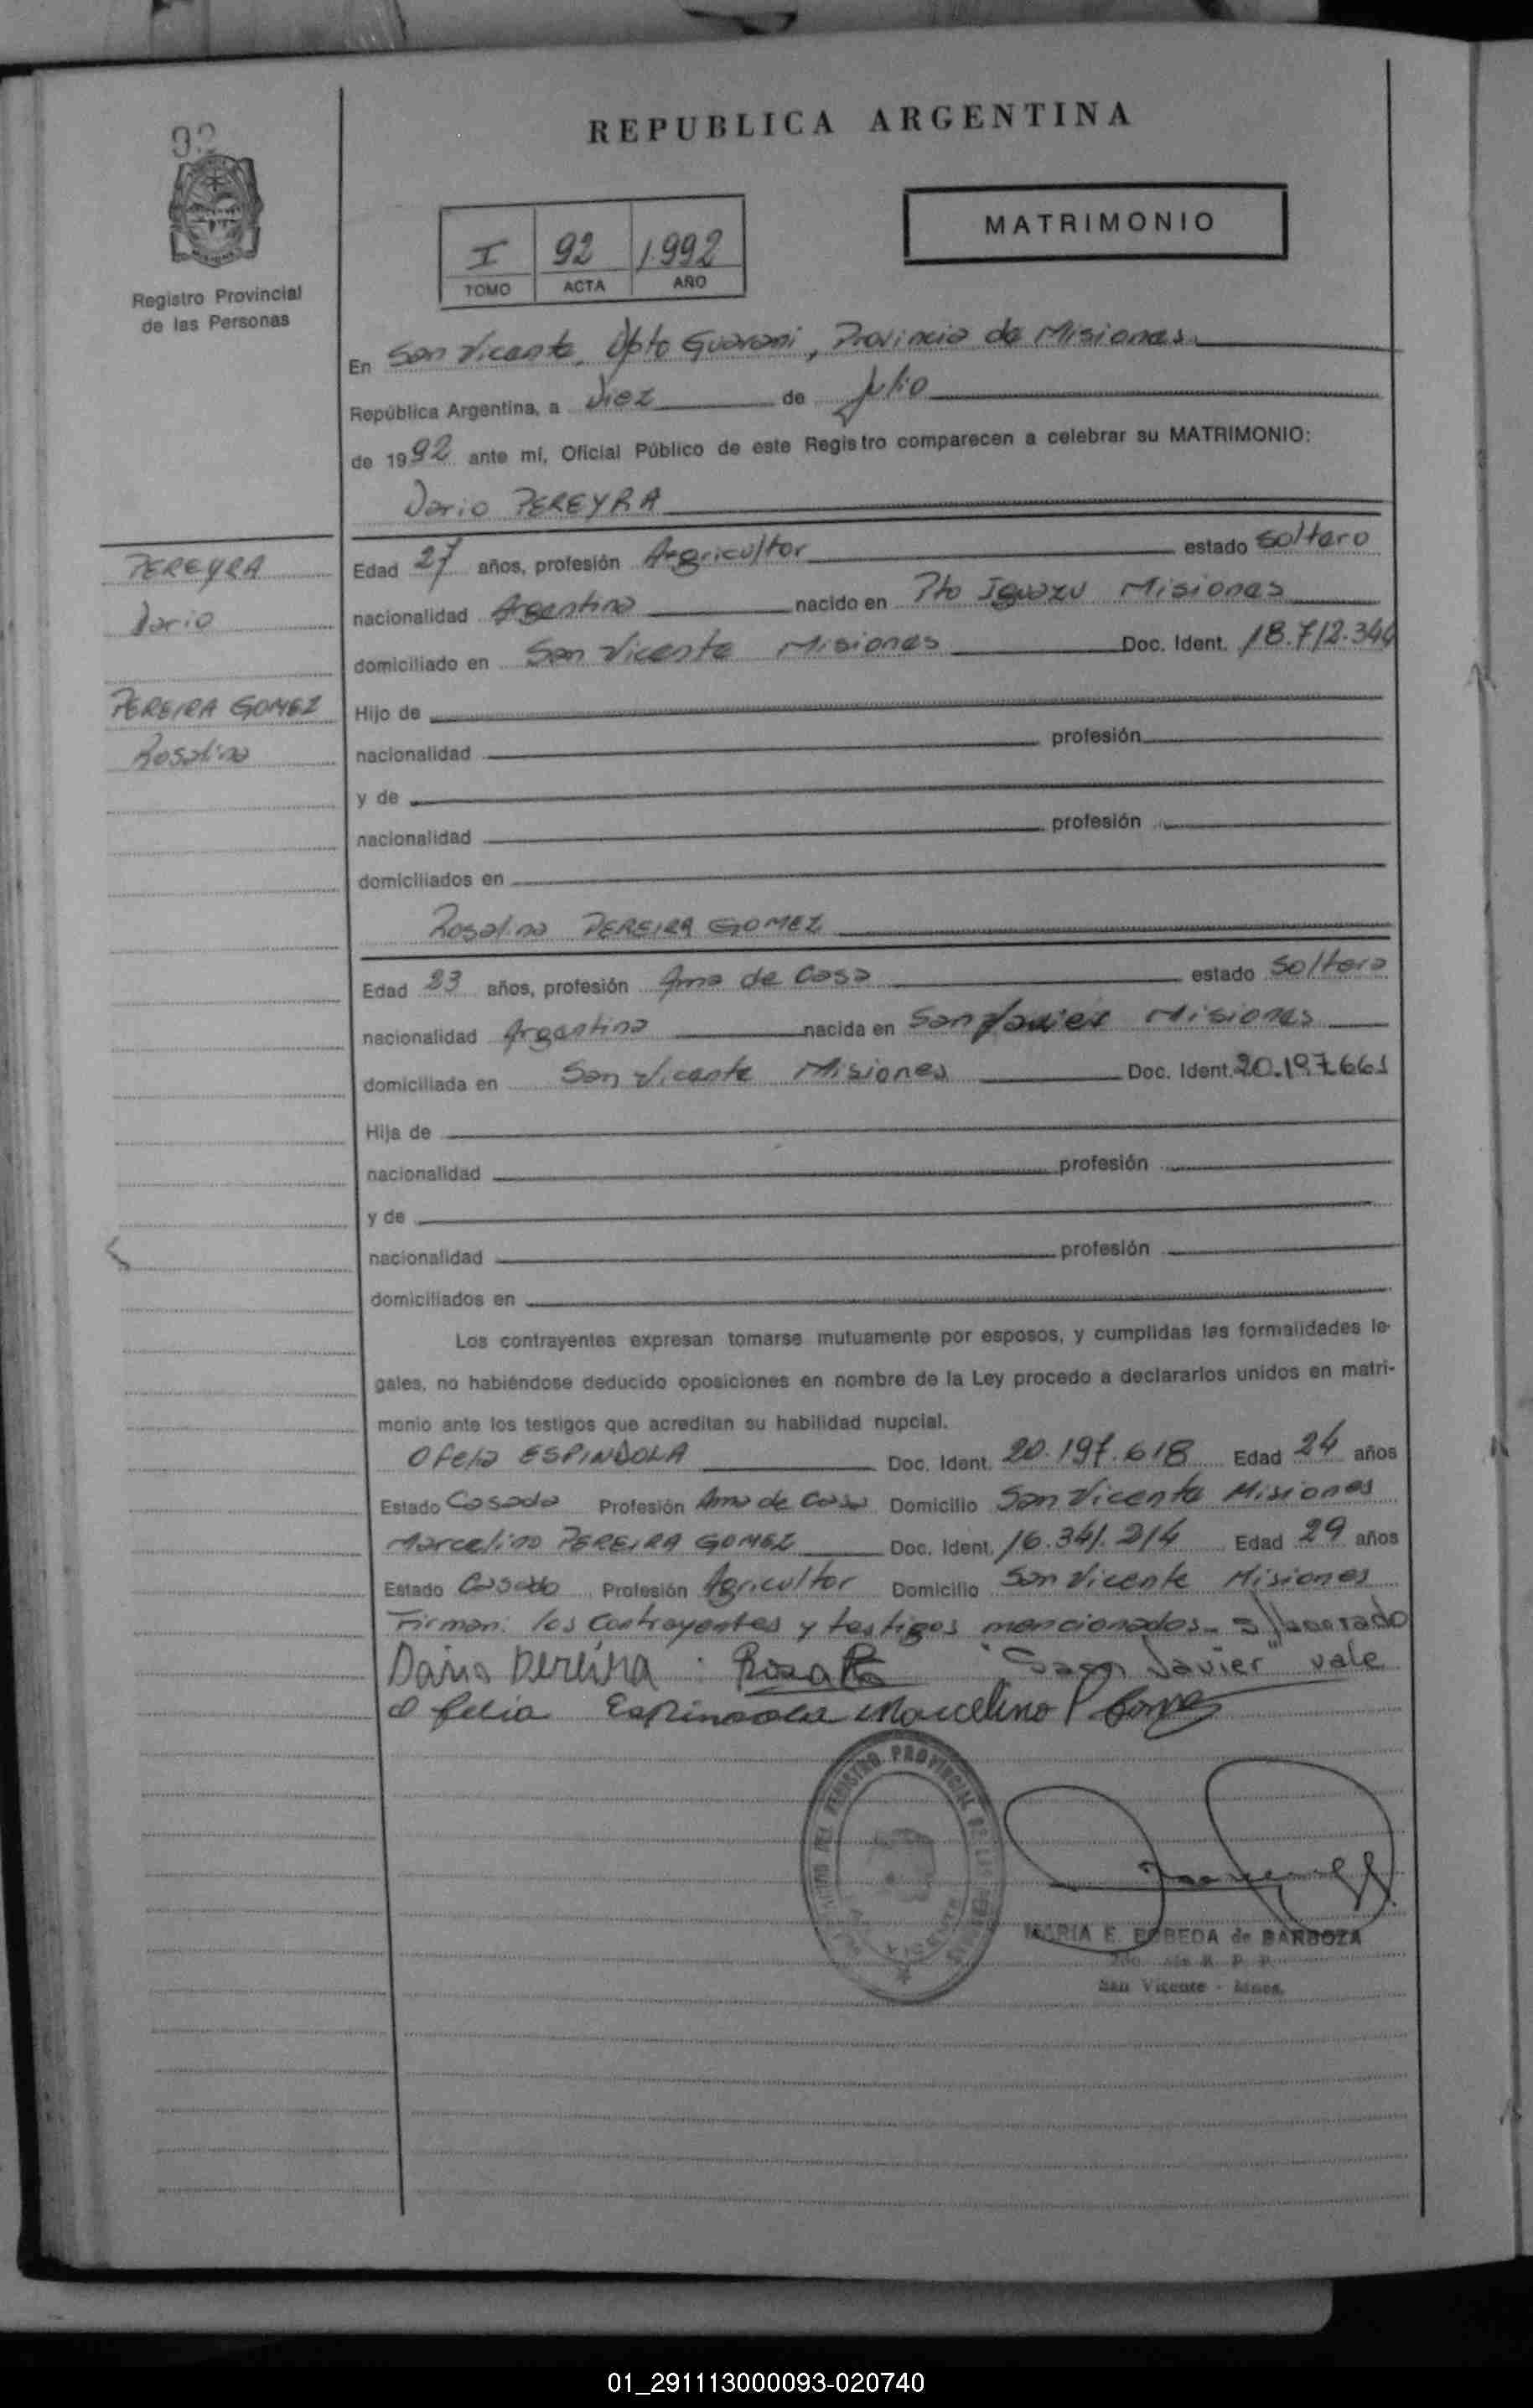 92
REPUBLICA ARGENTINA
MATRIMONIO
I 92 1.992
TOMO ACTA AÑO
Registro Provincial
de las Personas
En San Vicente, Dpto Guarani, Provincia de Misiones
República Argentina, a Diez de Julio
de 1992 ante mí, Oficial Público de este Registro comparecen a celebrar su MATRIMONIO:
Dario PEREYRA
PEREYRA
Dario
PEREIRA GOMEZ
Rosalina
Edad 27 años, profesión Agricultor estado Soltero
nacionalidad Argentina nacido en Pto Iguazu Misiones
domiciliado en San Vicente Misiones Doc. Ident. 18.712.344
Hijo de
nacionalidad profesión
y de
nacionalidad profesión
domiciliados en
Rosalina PEREIRA GOMEZ
Edad 23 años, profesión Ama de Casa estado Soltera
nacionalidad Argentina nacida en San Javier Misiones
domiciliada en San Vicente Misiones Doc. Ident. 20.197.661
Hija de
nacionalidad profesión
y de
nacionalidad profesión
domiciliados en
Los contrayentes expresan tomarse mutuamente por esposos, y cumplidas las formalidades le-
gales, no habiéndose deducido oposiciones en nombre de la Ley procedo a declararlos unidos en matri-
monio ante los testigos que acreditan su habilidad nupcial.
Ofelia ESPINDOLA Doc. Ident. 20.197.618 Edad 24 años
Estado Casada Profesión Ama de Casa Domicilio San Vicente Misiones
Marcelino PEREIRA GOMEZ Doc. Ident. 16.341.214 Edad 29 años
Estado Casado Profesión Agricultor Domicilio San Vicente Misiones
Firman: los Contrayentes y testigos mencionados
Dario Pereira Rosa "San Javier" vale
Ofelia Espindola Marcelino P Gomez
REGISTRO PROVINCIAL DE LAS PERSONAS
VICENTE
MARIA E. de BARBOZA
San Vicente - Mnes.
01_291113000093-020740